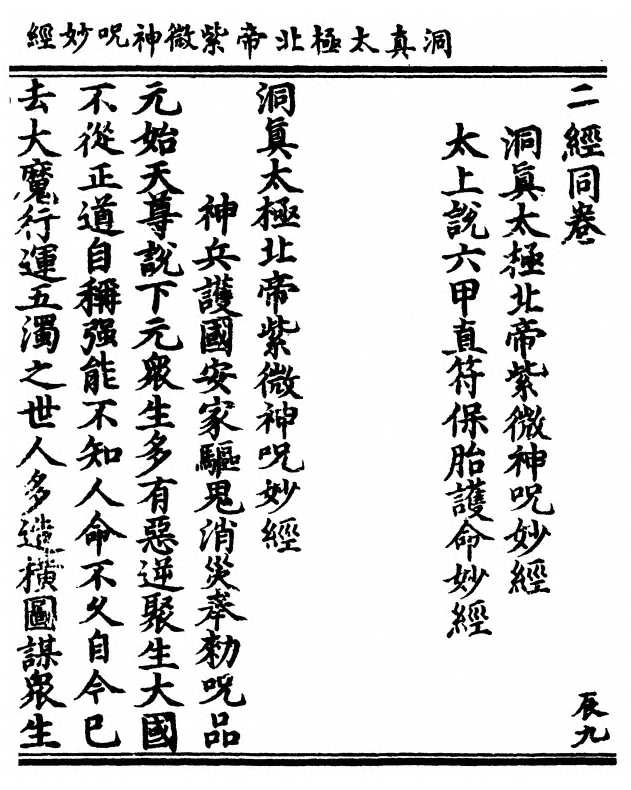 洞真太極北帝紫微神呪妙經
二經同卷
辰九
洞眞太極北帝紫微神呪妙經
太上說六甲直符保胎護命妙經
洞眞太極北帝紫微神呪妙經
神兵護國安家驅鬼消災奉勑呪品
元始天尊說下元衆生多有惡逆聚生大國
不從正道自稱强能不知人命不久自今已
去大魔行運五濁之世人多造橫圖謀衆生